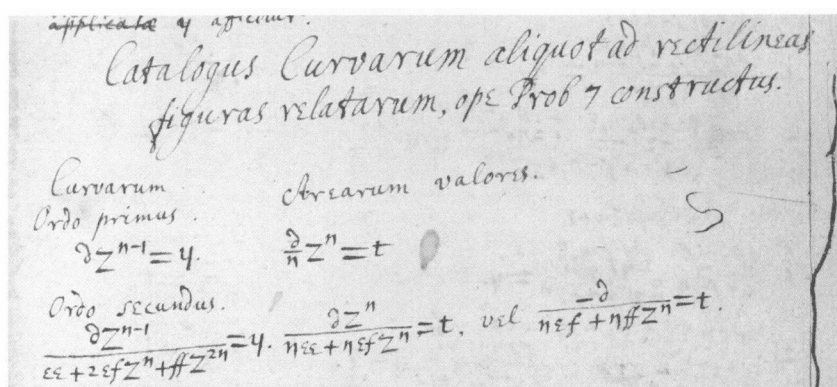 applicatæ y afficitur.
Catalogus Curvarum aliquot ad rectilineas
figuras relatarum, ope Prob 7 constructus.
Curvarum Arearum valores.
Ordo primus.
∂z^{η-1} = y. \frac{∂}{η} z^η = t
Ordo secundus.
\frac{∂z^{η-1}}{εε + 2εfz^η + ffz^{2η}} = y. \frac{∂z^η}{ηεε + ηεfz^η} = t. vel \frac{-∂}{ηεf + ηffz^η} = t.